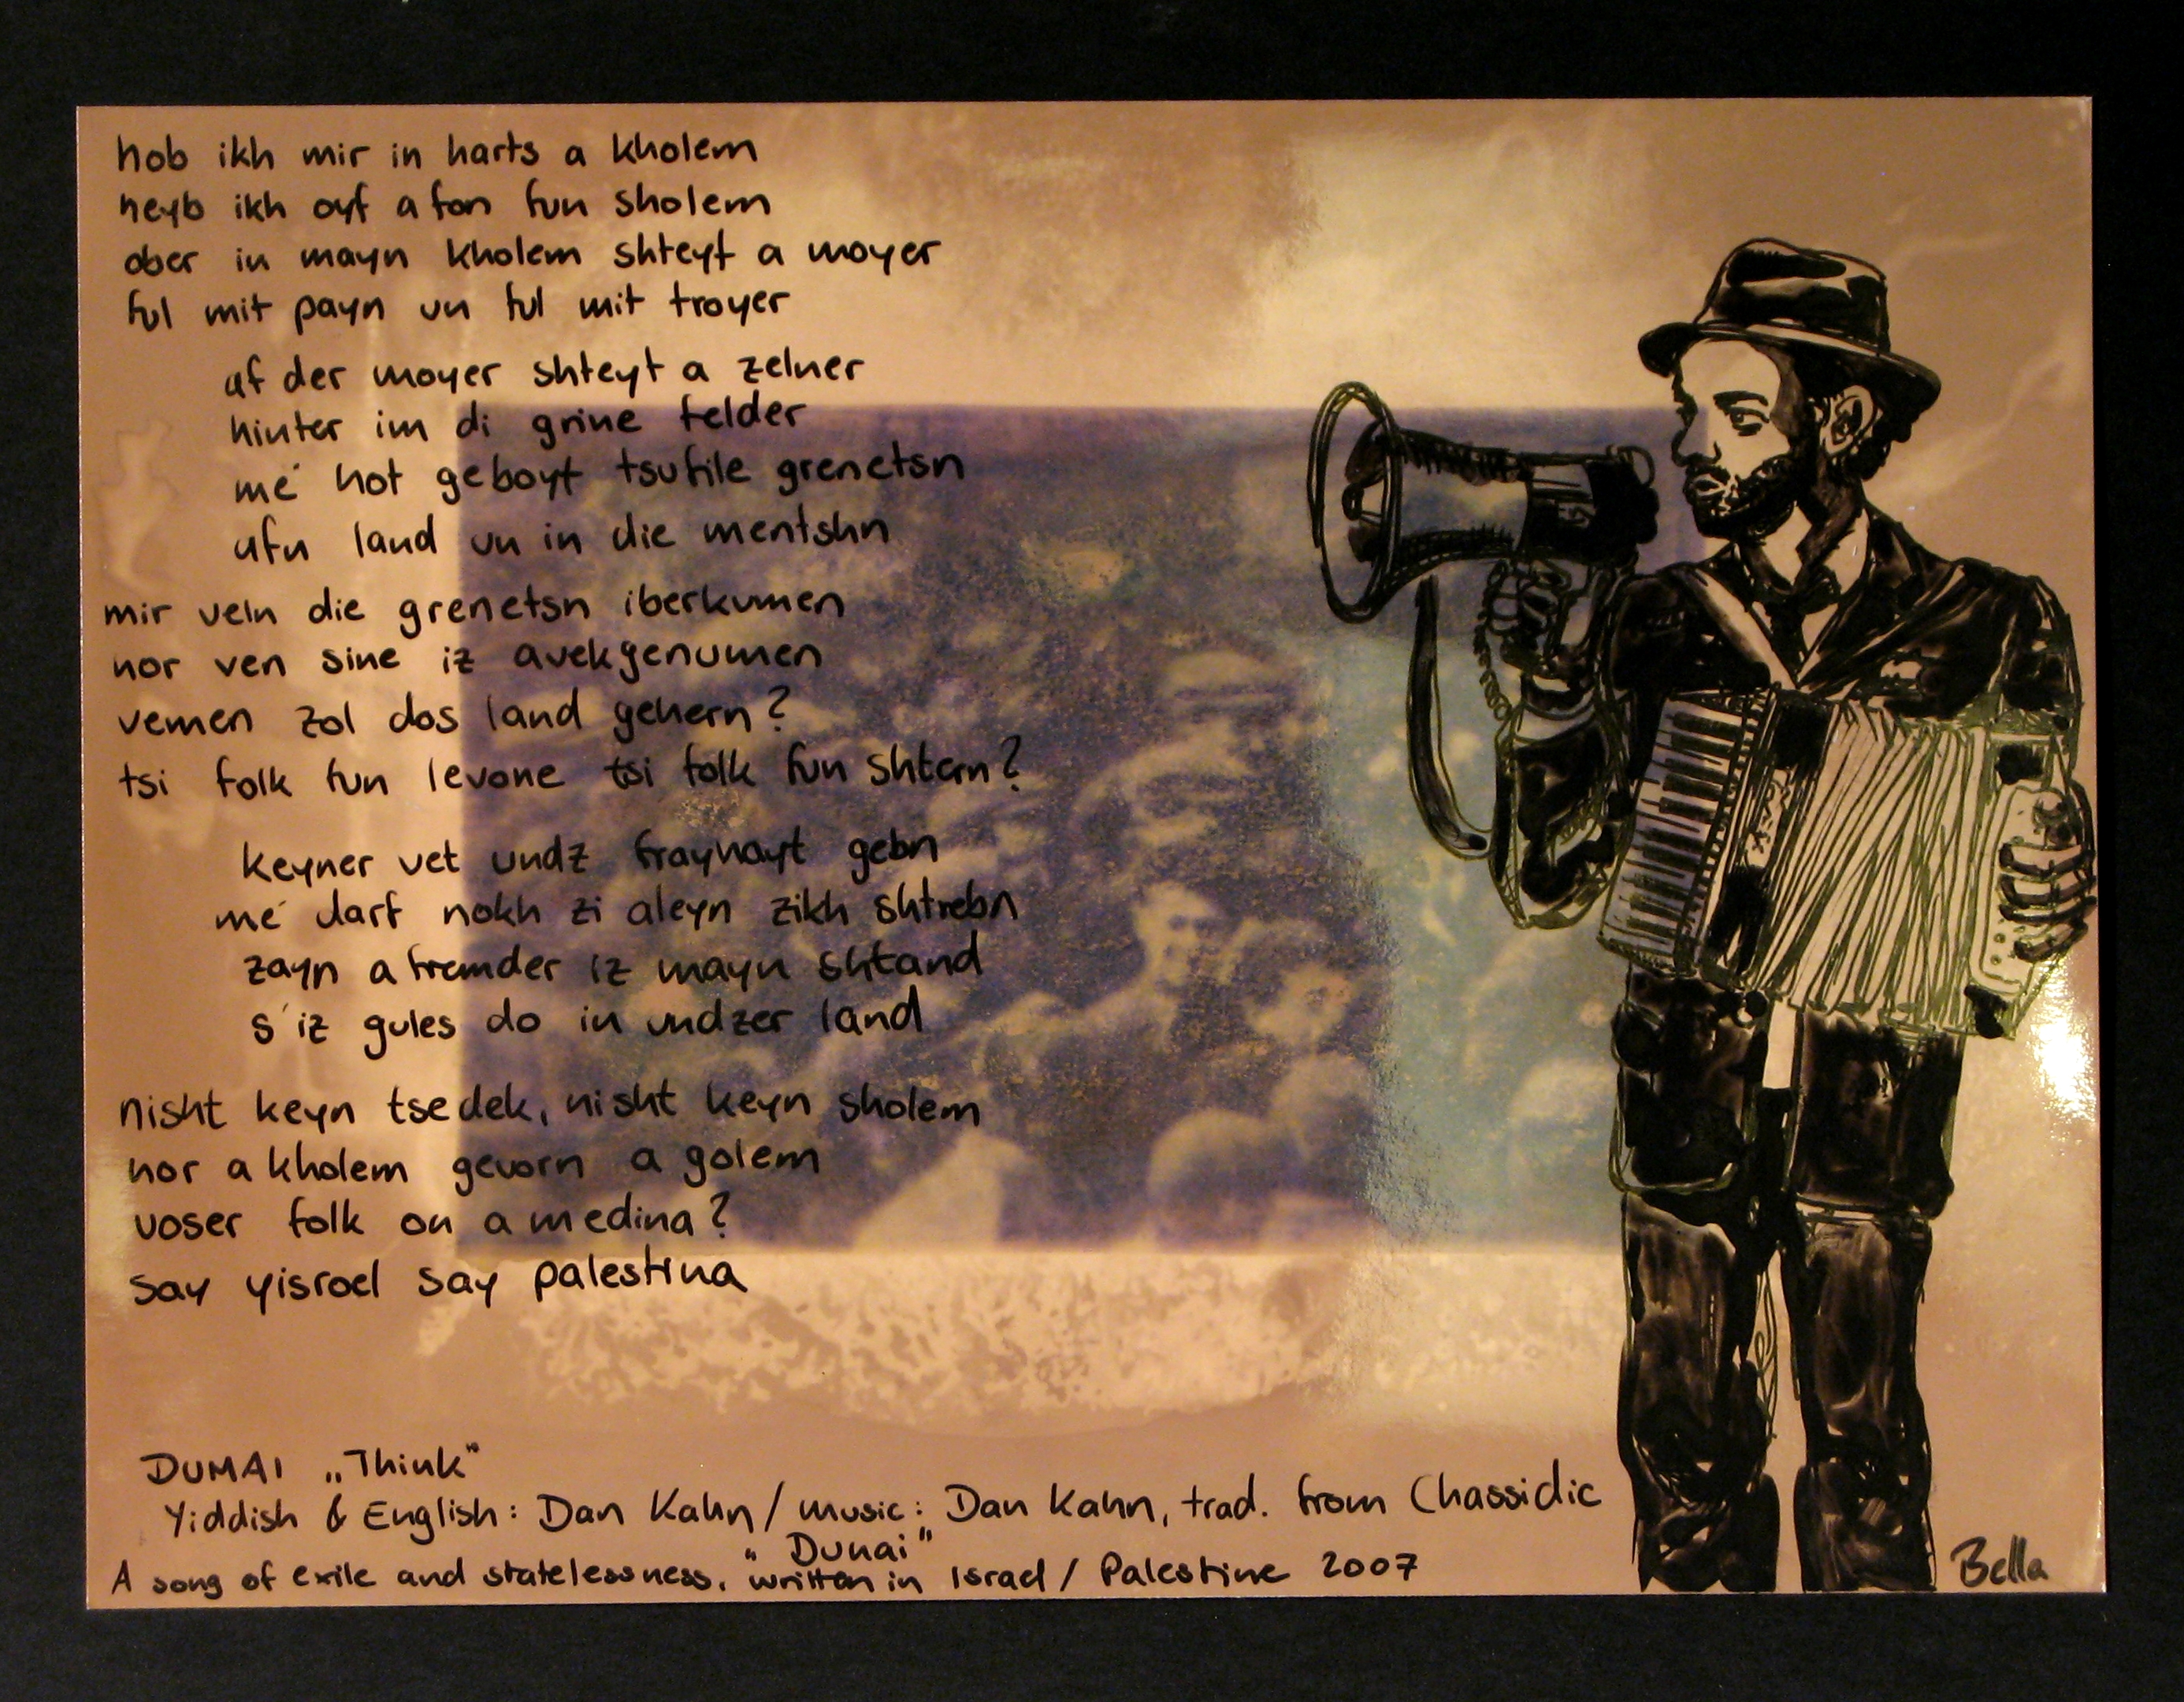 hob ikh mir in harts a kholem
heyb ikh oyf a fon fun sholem
ober in mayn kholem shteyt a moyer
ful mit payn un ful mit troyer
af der moyer shteyt a zelner
hinter im di grine felder
me' hot geboyt tsufile grenetsn
ufn land un in die mentshn
mir veln die grenetsn iberkumen
nor ven sine iz avekgenumen
vemen zol dos land gehern?
tsi folk fun levone tsi folk fun shtern?
keyner vet undz frayhayt gebn
me' darf nokh zi aleyn zikh shtrebn
zayn a fremder iz mayn shtand
s'iz gules do in undzer land
nisht keyn tsedek, nisht keyn sholem
nor a kholem gevorn a golem
voser folk on a medina?
say yisroel say palestina
DUMAI „Think"
Yiddish & English: Dan Kahn / music: Dan Kahn, trad. from Chassidic
"Dunai"
A song of exile and statelessness, written in Israel / Palestine 2007
Bella